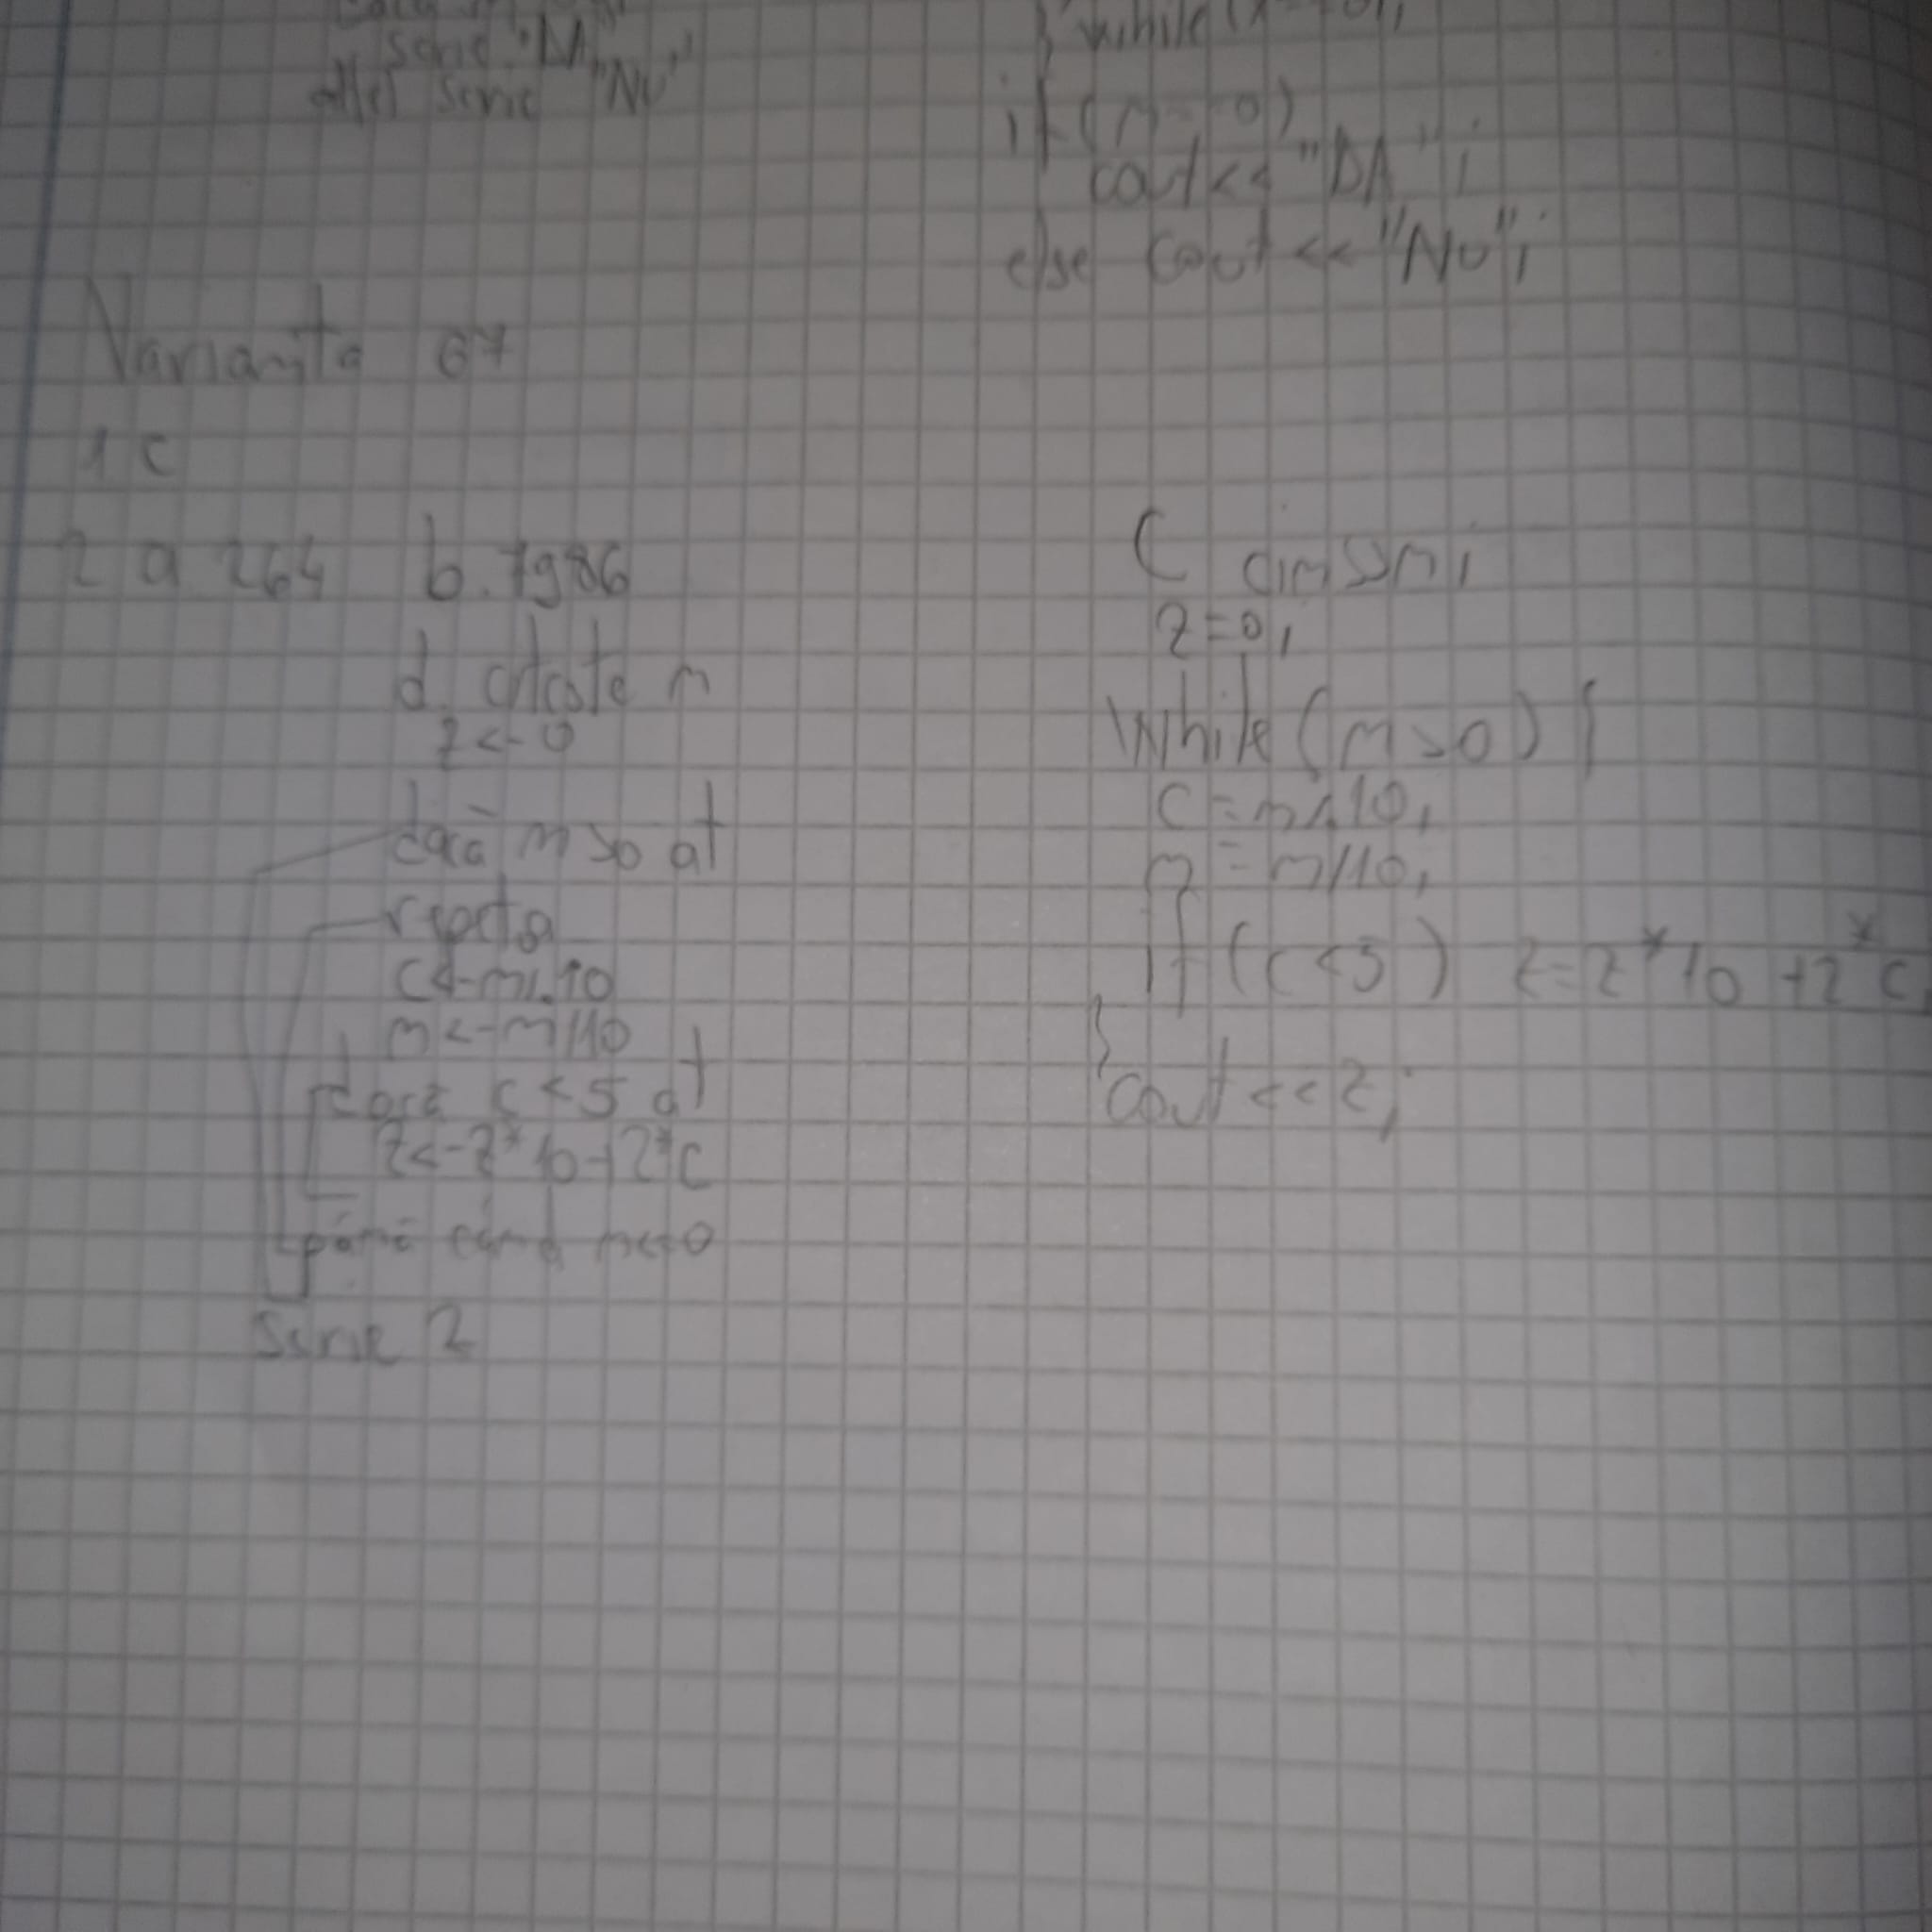 scrie "DA"
altfel scrie "NU"
if (n==0)
cout<< "DA";
else cout << "NU";
Varianta 67
1 c
2 a 264 b. 7986
d. citeste n
z<-0
dacă n>0 at
repeta
c<-n%10
n<-n/10
dacă c<5 at
z<-z*10+2*c
până când n<=0
scrie z
C cin>>n;
z=0;
While(n>0){
c=n%10;
n=n/10;
if(c<5) z=z*10+2*c;
}
cout<<z;